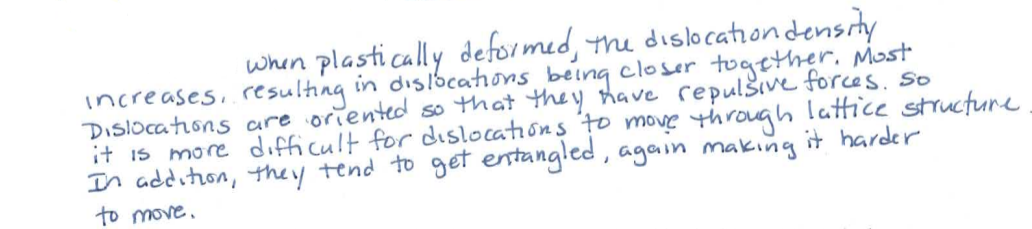 when plastically deformed, the dislocation density
increases, resulting in dislocations being closer together. Most
Dislocations are oriented so that they have repulsive forces. So
it is more difficult for dislocations to move through lattice structure.
In addition, they tend to get entangled, again making it harder
to move.